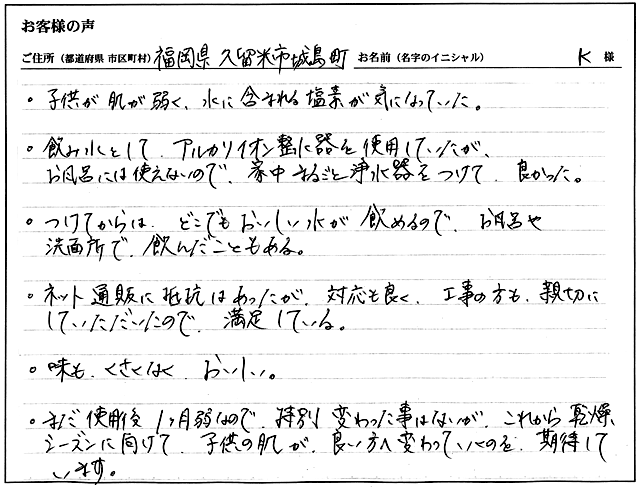 お客様の声
ご住所（都道府県 市区町村）福岡県 久留米市城島町 お名前（名字のイニシャル） K 様
。子供が肌が弱く、水に含まれる塩素が気になっていた。
。飲み水として、アルカリイオン整水器を使用していたが、
お風呂には使えないので、家中まるごと浄水器をつけて、良かった。
。つけてからは、どこでもおいしい水が飲めるので、お風呂や
洗面所で、飲んだこともある。
。ネット通販に抵抗はあったが、対応も良く、工事の方も、親切に
していただいたので、満足している。
。味も、くさくなく、おいしい。
。まだ使用後1ヶ月弱なので、特別変わった事はないが、これから乾燥
シーズンに向けて、子供の肌が、良い方へ変わっていくのを、期待して
います。